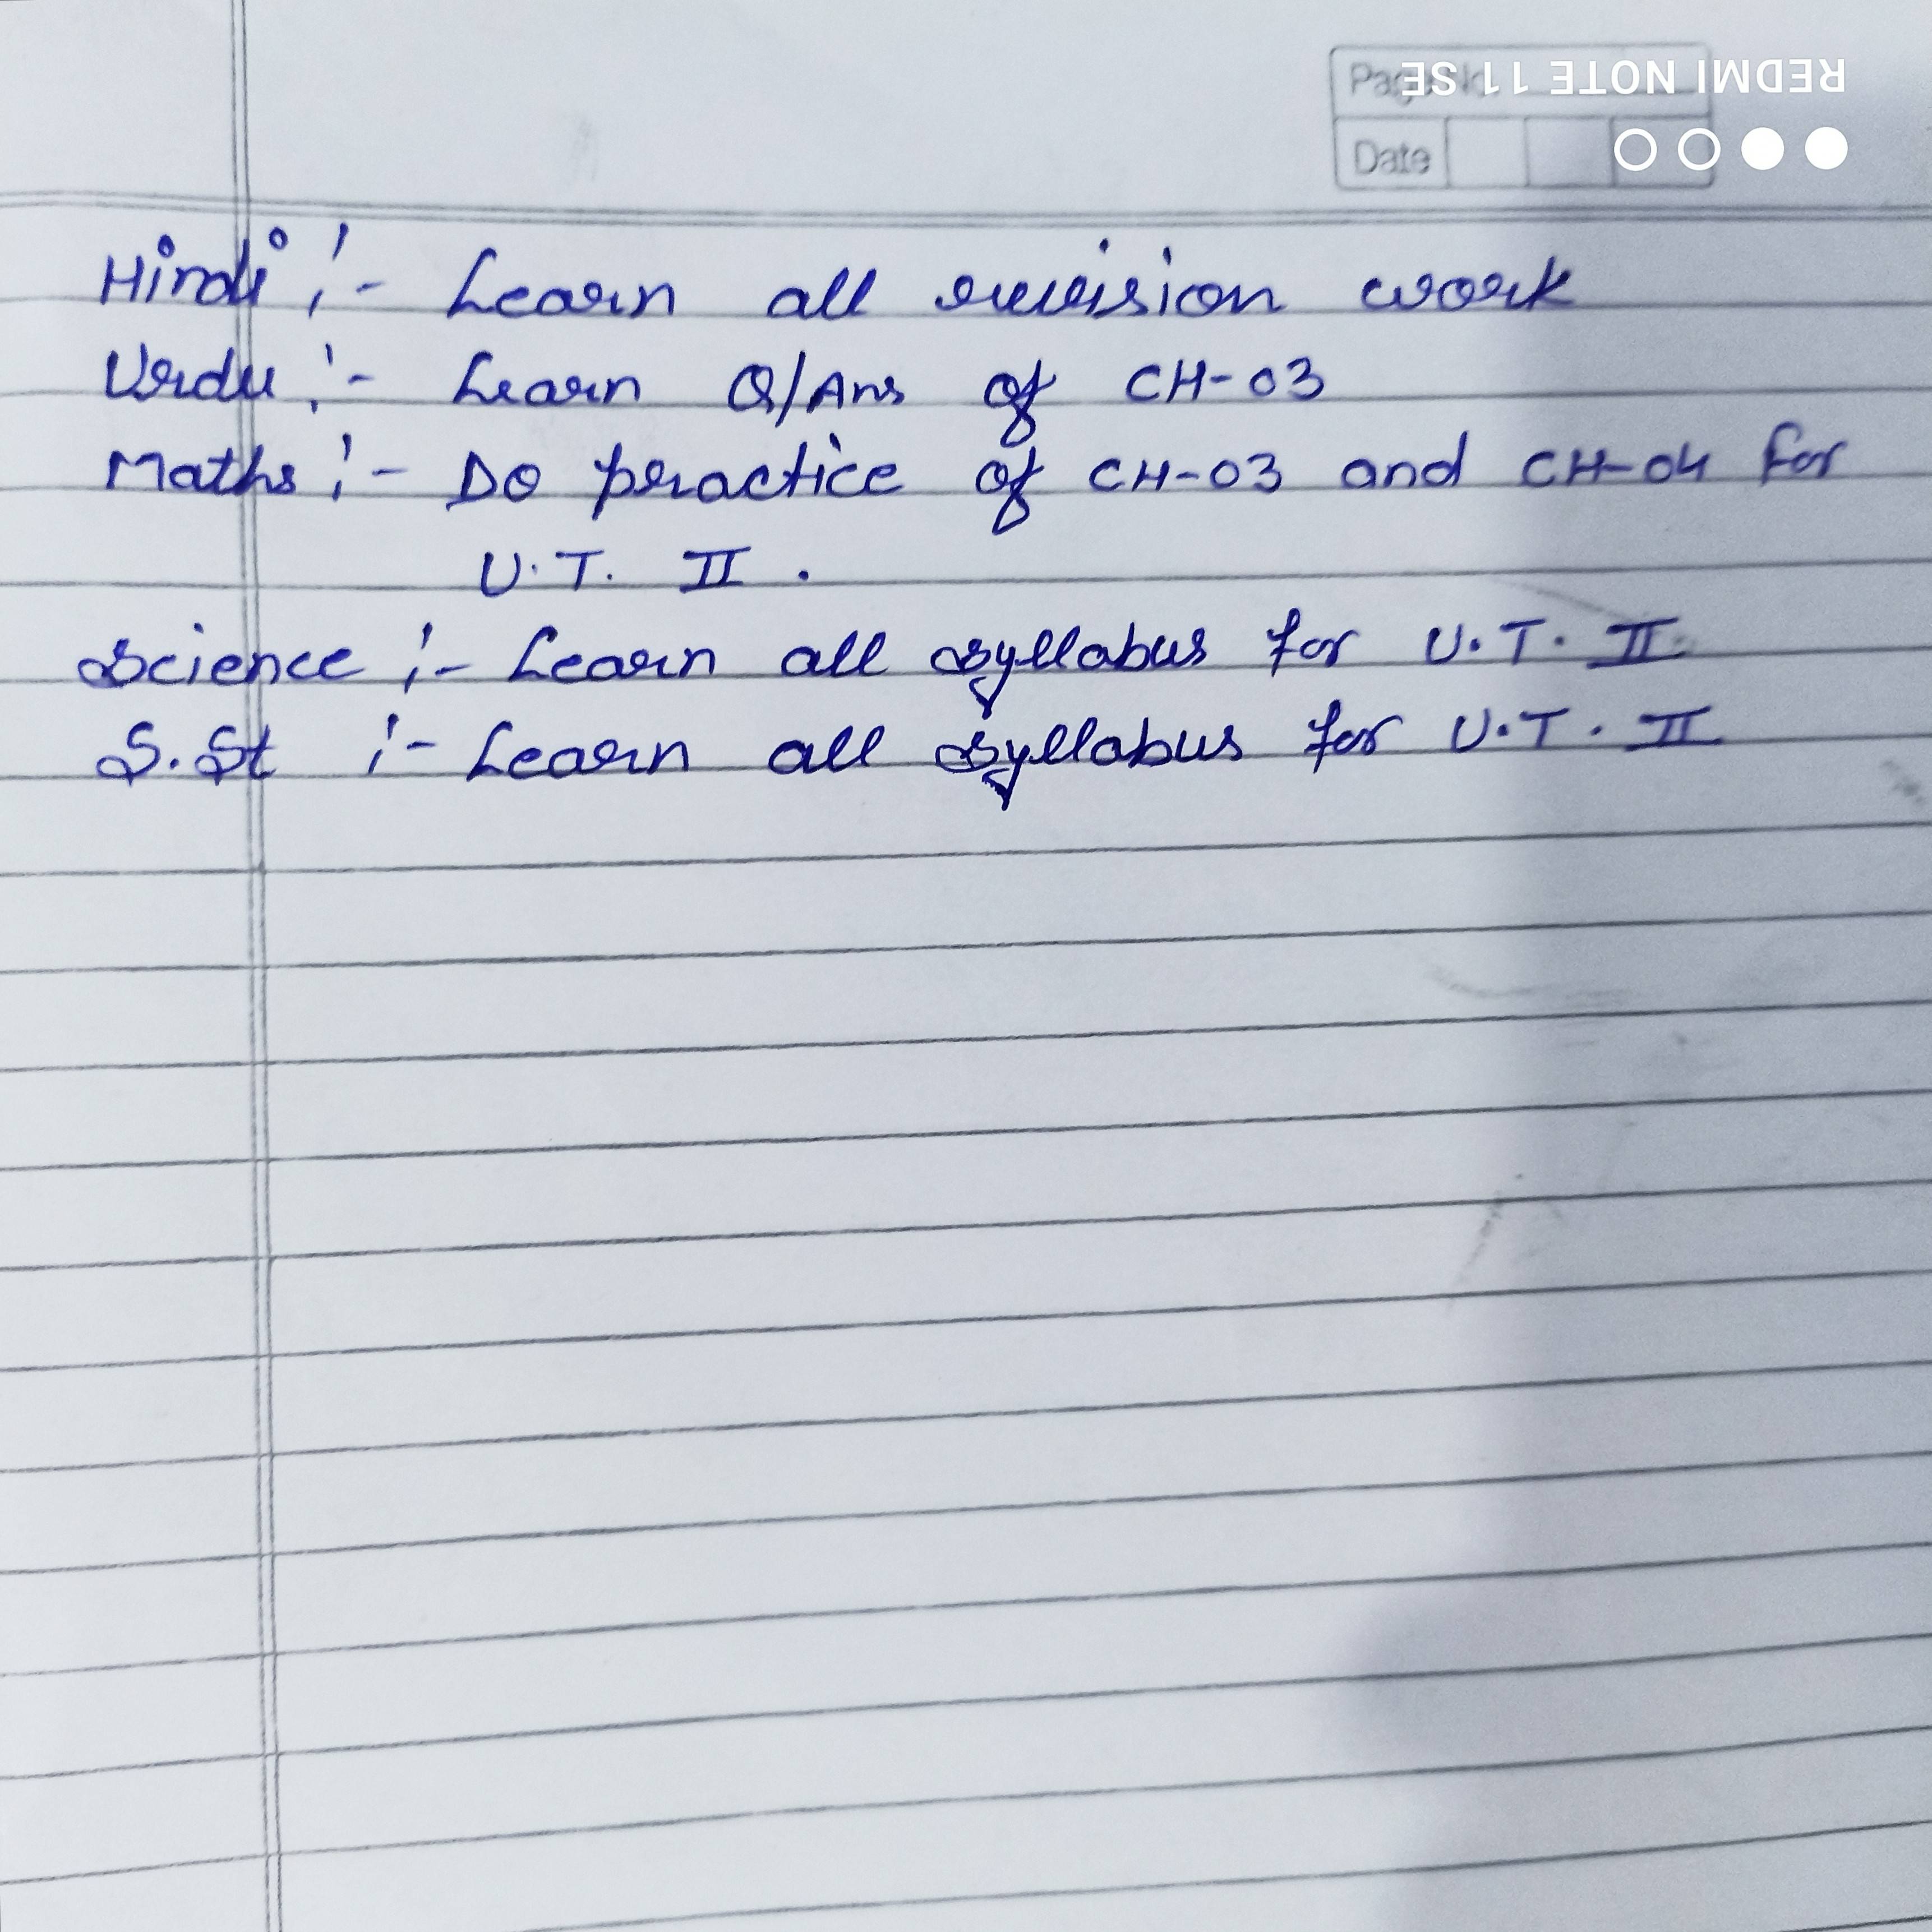 Page No.
REDMI NOTE 11 SE
Date
Hindi :- Learn all revision work
Urdu :- Learn Q/Ans of CH-03
Maths :- Do practice of CH-03 and CH-04 for
U.T. II .
Science :- Learn all syllabus for U.T. II.
S.St :- Learn all syllabus for U.T. II